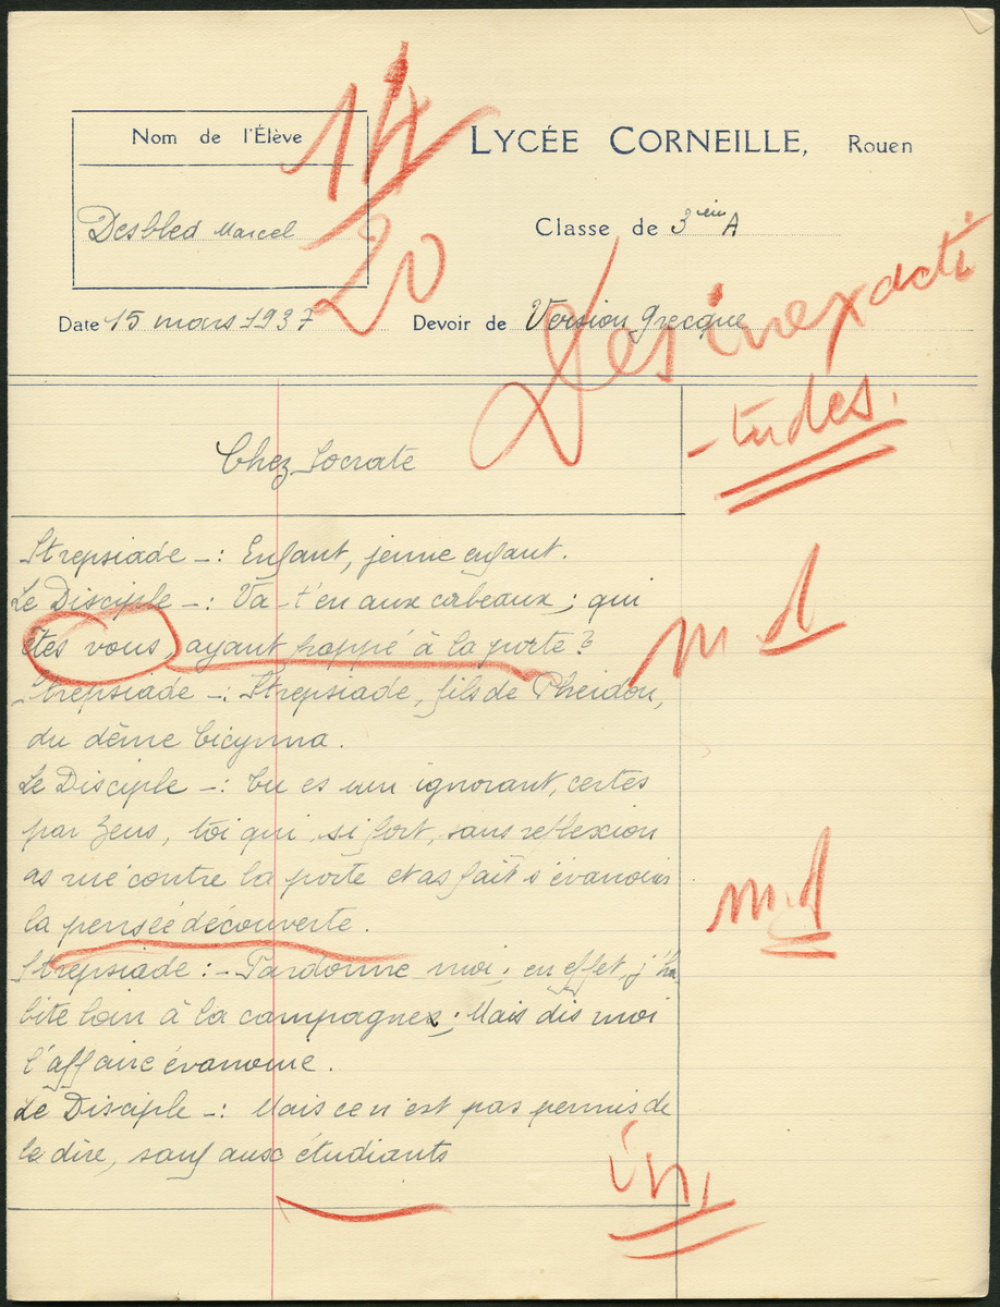 Nom de l'Élève
14
20
LYCÉE CORNEILLE, Rouen
Desbled Marcel
Classe de 3ème A
Date 15 mars 1937 Devoir de Version grecque
Des inexacti
-tudes.
Chez Socrate
Strepsiade -: Enfant, jeune enfant.
Le Disciple -: Va-t'en aux corbeaux ; qui
êtes vous, ayant frappé à la porte ?
m d
Strepsiade -: Strepsiade, fils de Pheidon,
du dême Cicynna.
Le Disciple -: Tu es un ignorant, certes
par Zeus, toi qui, si fort, sans reflexion
as rué contre la porte et as fait s'évanouir
m.d
la pensée découverte.
Strepsiade : - Pardonne moi ; en effet, j'ha
bite loin à la campagne ; Mais dis moi
l'affaire évanouie.
Le Disciple -: Mais ce n'est pas permis de
le dire, sauf aux étudiants
in,